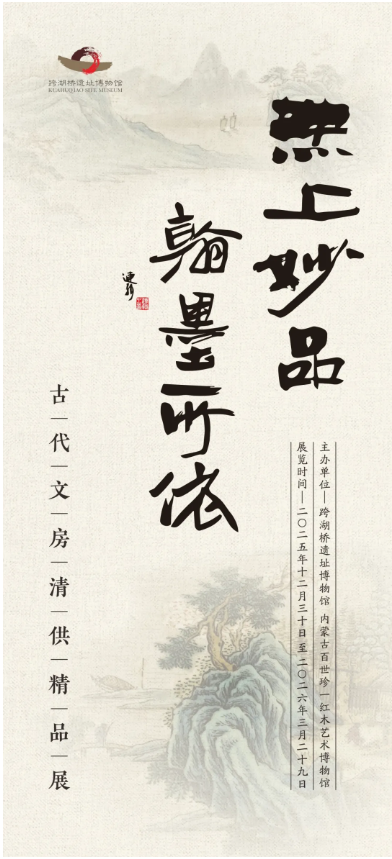 跨湖桥遗址博物馆
KUAHUQIAO SITE MUSEUM
無上妙品
翰墨所依
古代文房清供精品展
主办单位—跨湖桥遗址博物馆 内蒙古百世珍一红木艺术博物馆
展览时间—二〇二五年十二月三十日 至 二〇二六年三月二十九日